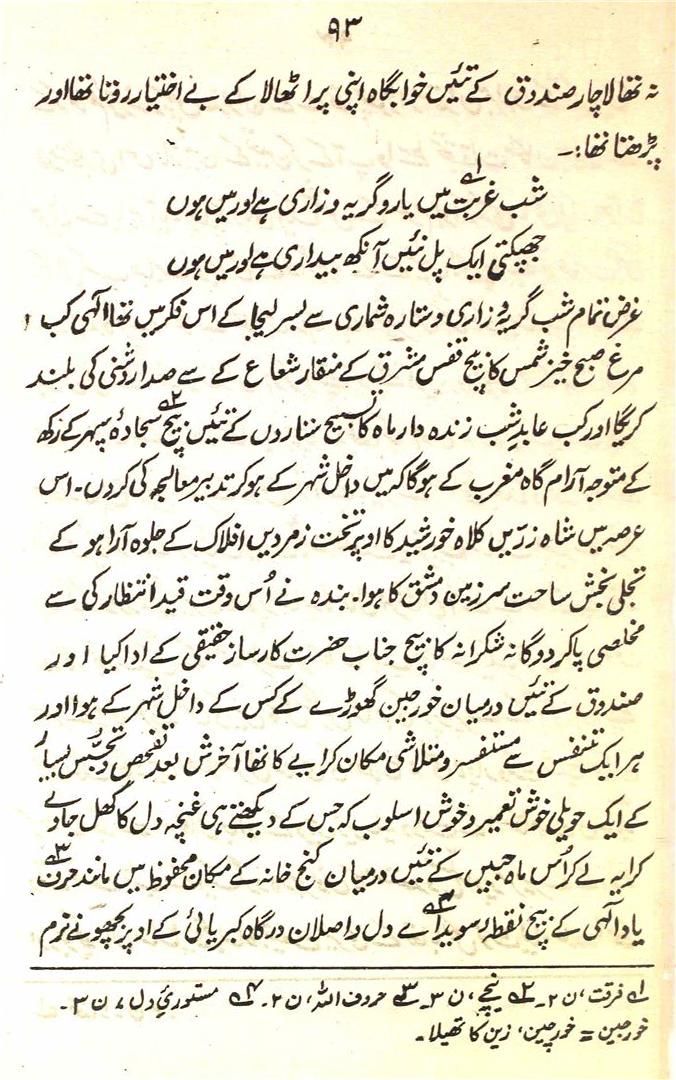 ۹۳
نہ تھا لاچار صندوق کے تئیں خوابگاہ اپنی پر اٹھا لا کے بے اختیار روتا تھا اور
پڑھتا تھا:۔
شب غربت۱؎ میں یارو گریہ و زاری ہے اور میں ہوں
جھپکتی ایک پل نئیں آنکھ بیداری ہے اور میں ہوں
غرض تمام شب گریہ و زاری و ستارہ شماری سے بسر لیجا کے اس فکر میں تھا الٰہی کب
مرغ صبح خیز شمس کا بیچ قفس مشرق کے منقار شعاع کے سے صدا روشنی کی بلند
کریگا اور کب عابد شب زندہ دار ماہ کا تسبیح ستاروں کے تئیں بیچ۲؎ سجادۂ سپہر کے رکھ
کے متوجہ آرام گاہ مغرب کے ہوگا کہ میں داخل شہر کے ہو کر تدبیر معالجہ کی کروں۔ اس
عرصہ میں شاہ زرّیں کلاہ خورشید کا اوپر تخت زمردیں افلاک کے جلوہ آرا ہو کے
تجلی بخش ساحت سرزمین دمشق کا ہوا۔ بندہ نے اُس وقت قید انتظار کی سے
مخلصی پا کر دوگانہ شکرانہ کا بیچ جناب حضرت کارساز حقیقی کے ادا کیا اور
صندوق کے تئیں درمیان خورجین گھوڑے کے کس کے داخل شہر کے ہوا اور
ہر ایک تنفس سے مستفسر و متلاشی مکان کرایے کا تھا آخرش بعد تفحص و تجسّس بسیار
کے ایک حویلی خوش تعمیر و خوش اسلوب کہ جس کے دیکھتے ہی غنچہ دل کا کھل جاوے
کرایہ لے کر اُس ماہ جبیں کے تئیں درمیان کنج خانہ کے مکان محفوظ میں مانند حرف۳؎
یاد الٰہی کے بیچ نقطۂ سویدائے۴؎ دل واصلان درگاہ کبریائی کے اوپر بچھونے نرم
۱؎ فرقت، ن ۲۔ ۲؎ نیچے، ن ۳۔ ۳؎ حروف اللہ، ن ۲۔ ۴؎ مستوریِ دل، ن ۳۔
خورجین = خورچین، زین کا تھیلا۔